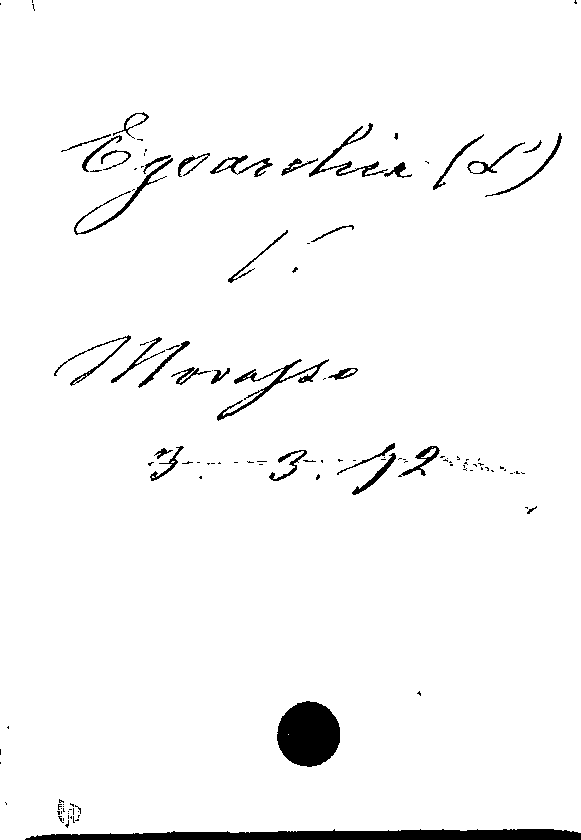 Egoarchia (L')
V.
Morasso
3. 3. 92